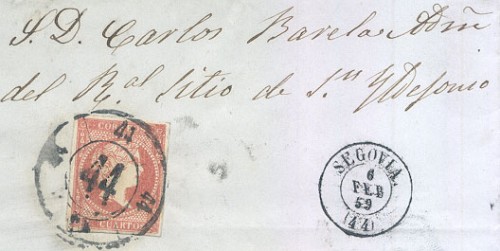 S. D. Carlos Barela Admr
del Rl. Sitio de Sn Yldefonso
44
44
44
CUARTO
SEGOVIA.
6
FEB
59
(44)